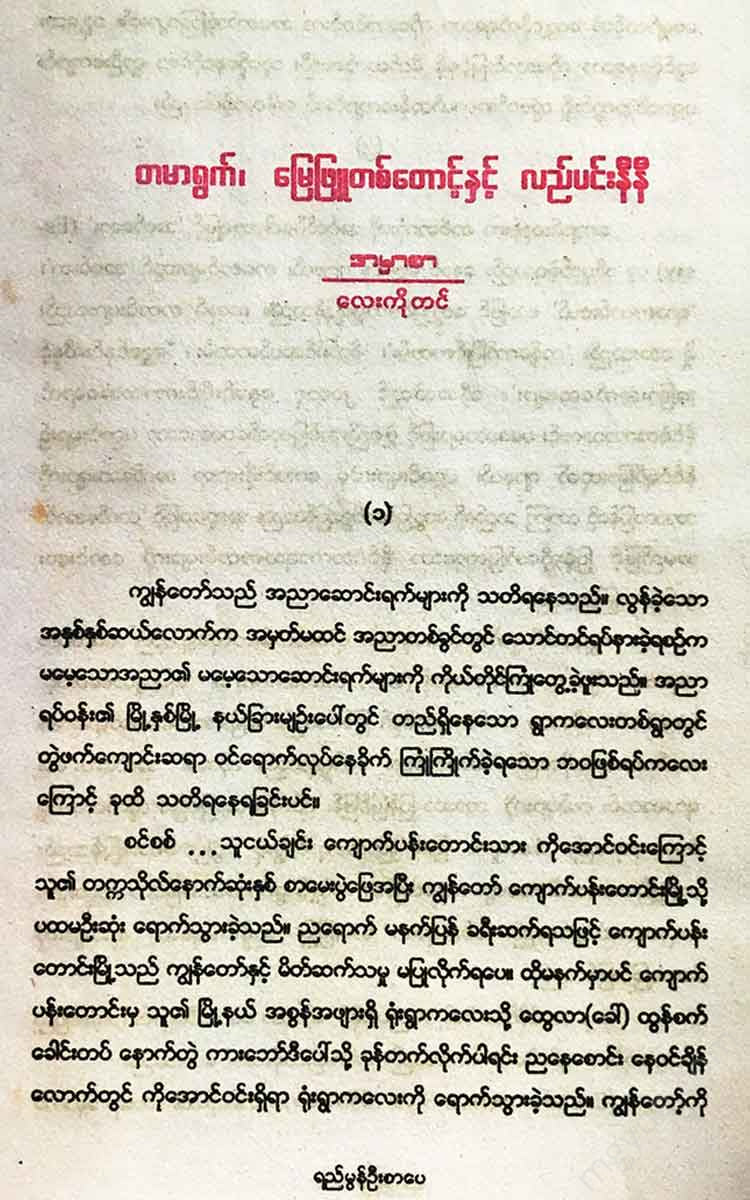 တမာရွက်၊ မြေဖြူတစ်တောင့်နှင့် လည်ပင်းနီနီ
အမှာစာ
လေးကိုတင်
(၁)
ကျွန်တော်သည် အညာဆောင်းရက်များကို သတိရနေသည်။ လွန်ခဲ့သော
အနှစ်နှစ်ဆယ်လောက်က အမှတ်မထင် အညာတစ်ခွင်တွင် သောင်တင်ရပ်နားခဲ့ရစဉ်က
မမေ့သောအညာ၏ မမေ့သောဆောင်းရက်များကို ကိုယ်တိုင်ကြုံတွေ့ခဲ့ဖူးသည်။ အညာ
ရပ်ဝန်း၏ မြို့နှစ်မြို့ နယ်ခြားမျဉ်းပေါ်တွင် တည်ရှိနေသော ရွာကလေးတစ်ရွာတွင်
တွဲဖက်ကျောင်းဆရာ ဝင်ရောက်လုပ်နေခိုက် ကြုံကြိုက်ခဲ့ရသော ဘဝဖြစ်ရပ်ကလေး
ကြောင့် ခုထိ သတိရနေရခြင်းပင်။
စင်စစ် ...သူငယ်ချင်း ကျောက်ပန်းတောင်းသား ကိုအောင်ဝင်းကြောင့်
သူ၏ တက္ကသိုလ်နောက်ဆုံးနှစ် စာမေးပွဲဖြေအပြီး ကျွန်တော် ကျောက်ပန်းတောင်းမြို့သို့
ပထမဦးဆုံး ရောက်သွားခဲ့သည်။ ညရောက် မနက်ပြန် ခရီးဆက်ရသဖြင့် ကျောက်ပန်း
တောင်းမြို့သည် ကျွန်တော်နှင့် မိတ်ဆက်သမှု မပြုလိုက်ရပေ။ ထိုမနက်မှာပင် ကျောက်
ပန်းတောင်းမှ သူ၏ မြို့နယ် အစွန်အဖျားရှိ ရုံးရွာကလေးသို့ ထွေလာ(ခေါ်) ထွန်စက်
ခေါင်းတပ် နောက်တွဲ ကားဘော်ဒီပေါ်သို့ ခုန်တက်လိုက်ပါရင်း ညနေစောင်း နေဝင်ချိန်
လောက်တွင် ကိုအောင်ဝင်းရှိရာ ရုံးရွာကလေးကို ရောက်သွားခဲ့သည်။ ကျွန်တော့်ကို
ရည်မွန်ဦးစာပေ